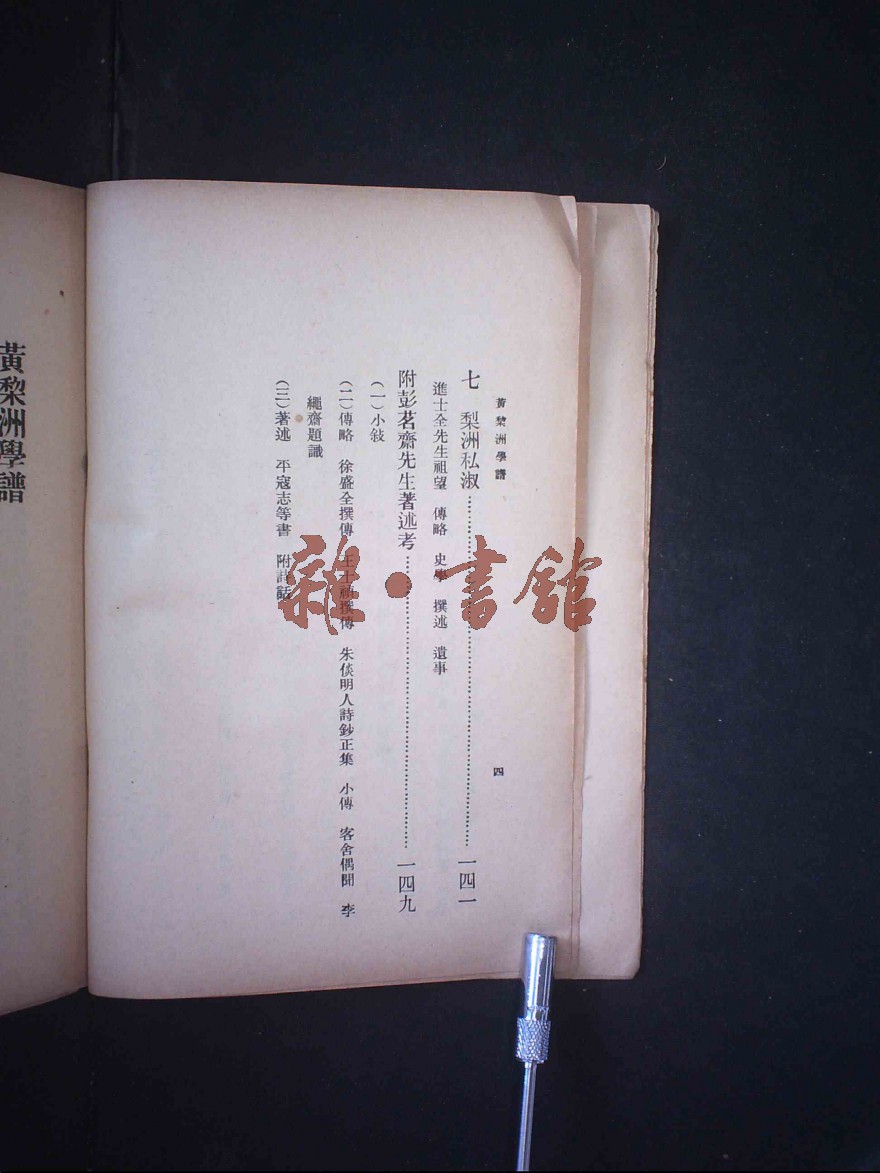 黃黎洲學譜
四
七 梨洲私淑……一四一
進士全先生祖望 傳略 史學 撰述 遺事
附彭茗齋先生著述考……一四九
(一)小敍
(二)傳略 徐盛全撰傳 王士禎撰傳 朱倓明人詩鈔正集 小傳 客舍偶聞 李
繩齋題識
(三)著述 平寇志等書 附詩話
黃黎洲學譜
雜·書館